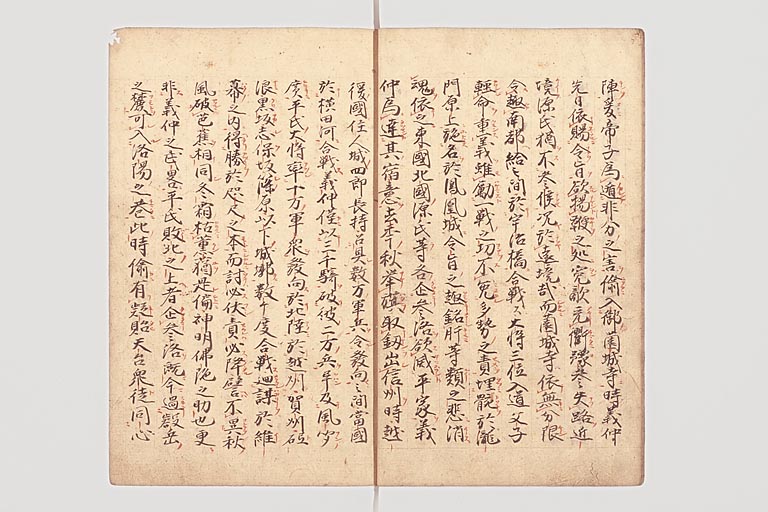 陣爰帝子為遁非分之害偸入御薗城寺時義仲
先日依賜令旨欲揚鞭之処寃敵充衢豫参失路近
境源氏猶不参候况於遠境哉而薗城寺依無分限
令趣南都給之間於宇治橋合戦大将三位入道父子
軽命重義雖励一戦之功不免多勢之責埋骸於龍
門原上施名於鳳凰城令旨之趣銘肝等類之悲消
魂依之東國北國源氏等各企参洛欲滅平家義
仲為達其宿意去年秋挙旗取釼出信州時越
後國住人城四郎長持召具数万軍兵令發向之間當國
於横田河合戦義仲僅以三千騎破彼二万兵畢及風聞
廣平氏大将率十万軍衆發向於北陸於越州賀州砥
浪黒坂志保坂篠原以下城郭数十度合戦廻謀於維
幕之内得勝於咫尺之本而討必伏責必降譬不異秋
風破芭蕉相同冬霜枯薫蕕是偏神明佛陁之助也更
非義仲之武畧平氏敗北之上者企参洛既今過叡岳
之麓可入洛陽之巷此時偸有疑貽天台衆徒同心